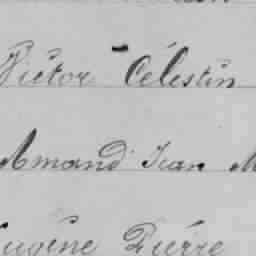 Victor Célestin
Amand Jean M
Eugène Pierre